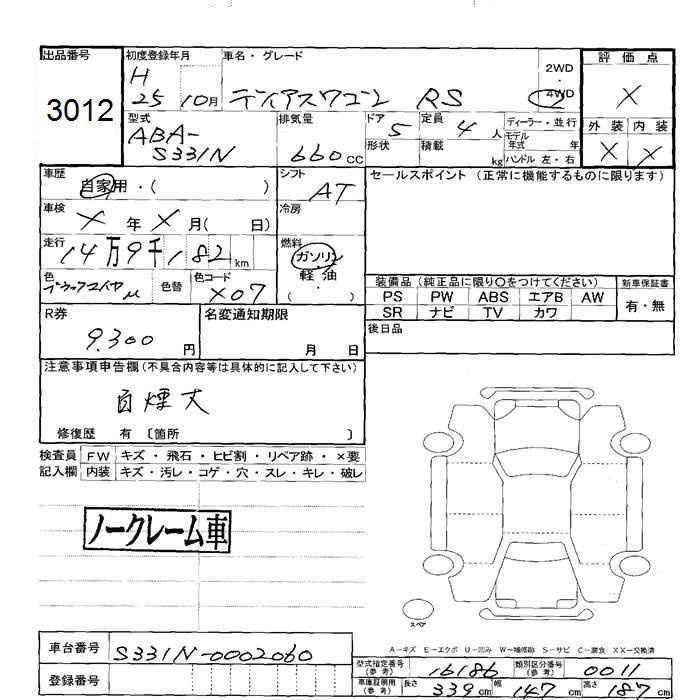 出品番号 初度登録年月 車名・グレード 評価点
3012 H 25 10月 ディアスワゴン RS 2WD・4WD X
型式 排気量 ドア 定員 ディーラー・並行 外装 内装
ABA-S331N 660cc 5 4人 モデル年式 年 X X
形状 積載 kg ハンドル 左・右
車歴 自家用・( ) シフト AT セールスポイント (正常に機能するものに限ります)
車検 X年 X月( 日) 冷房
走行 14万9千182km 燃料 ガソリン 軽油 ( ・ )
色 色替 色コード X07
装備品(純正品に限り○をつけてください) 新車保証書
PS PW ABS エアB AW 有・無
SR ナビ TV カワ
R券 9.300円 名変通知期限 月 日 後日品
注意事項申告欄(不具合内容等は具体的に記入して下さい)
白煙丈
修復歴 有 〔箇所 〕
検査員 FW キズ・飛石・ヒビ割・リペア跡・×要
記入欄 内装 キズ・汚レ・コゲ・穴・スレ・キレ・破レ
ノークレーム車
スペア
A-キズ E-エクボ U-凹み W-補修跡 S-サビ C-腐食 XX-交換済
車台番号 S331N-0002060
登録番号
型式指定番号(参考) 16186 類別区分番号(参考) 0011
車庫証明用(参考) 長さ 339cm 幅 147cm 高さ 187cm